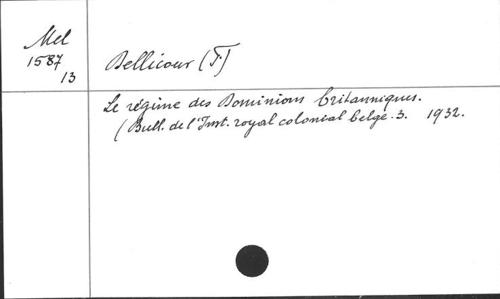 Mel
1587
13
Bellicour (F.)
Le régime des Dominions britanniques.
(Bull. de l'Inst. royal colonial belge. 3. 1932.